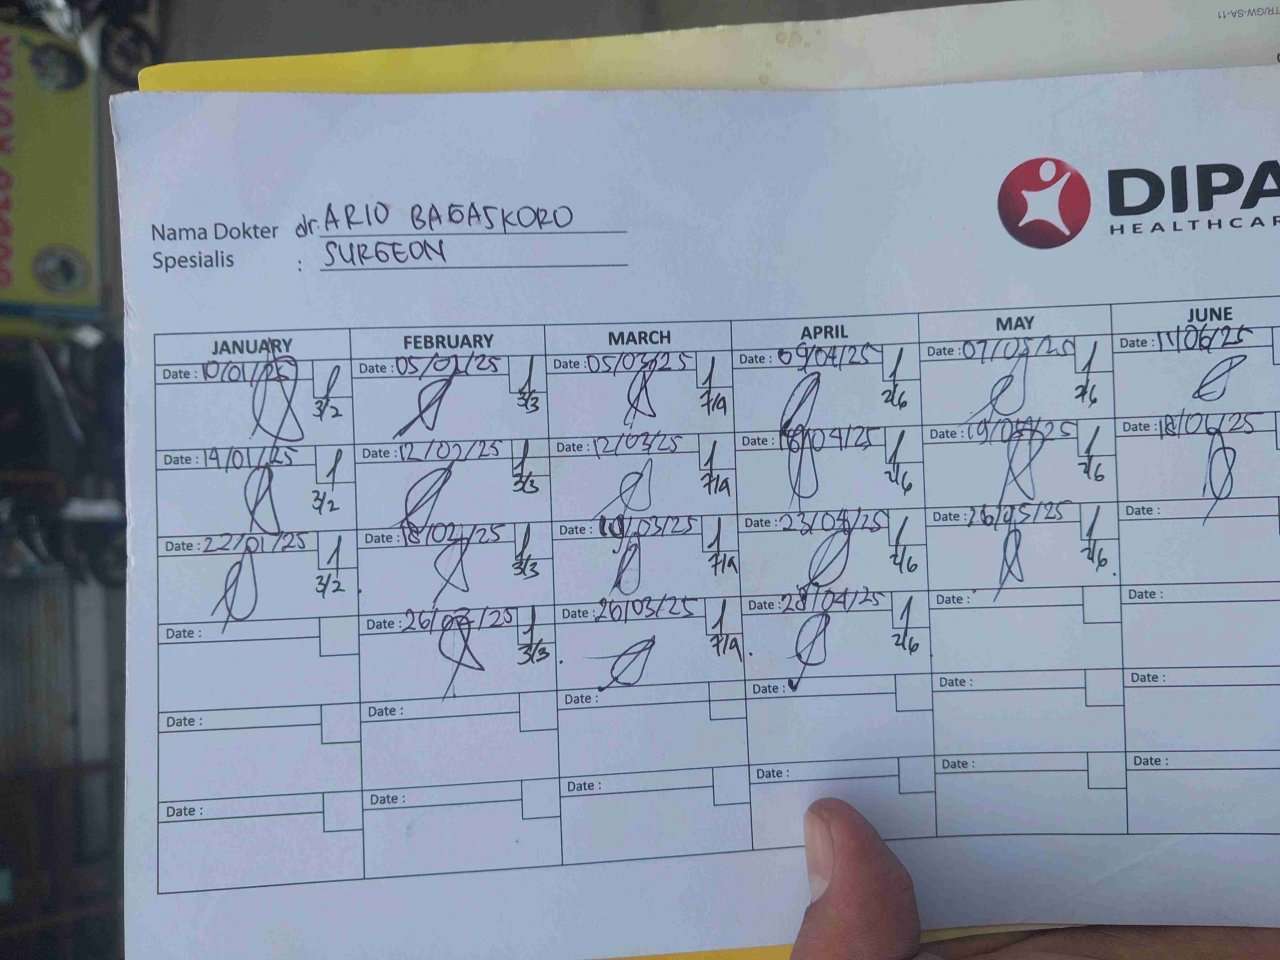 TR/GW-SA-11
SOLO MOTOR
DIPA
HEALTHCAR
Nama Dokter dr. ARIO BAGASKORO
Spesialis : SURGEON
JANUARY FEBRUARY MARCH APRIL MAY JUNE
Date : 10/01/25 3/2 Date : 05/02/25 3/3 Date : 05/03/25 7/9 Date : 09/04/25 2/6 Date : 07/05/25 2/6 Date : 11/06/25
Date : 14/01/25 3/2 Date : 12/02/25 3/3 Date : 12/03/25 7/9 Date : 18/04/25 2/6 Date : 19/05/25 2/6 Date : 18/06/25
Date : 22/01/25 3/2 Date : 18/02/25 3/3 Date : 19/03/25 7/9 Date : 23/04/25 2/6 Date : 26/05/25 2/6 Date :
Date : Date : 26/02/25 3/3 Date : 26/03/25 7/9 Date : 28/04/25 2/6 Date : Date :
Date : Date : Date : Date : Date : Date :
Date : Date : Date : Date : Date : Date :